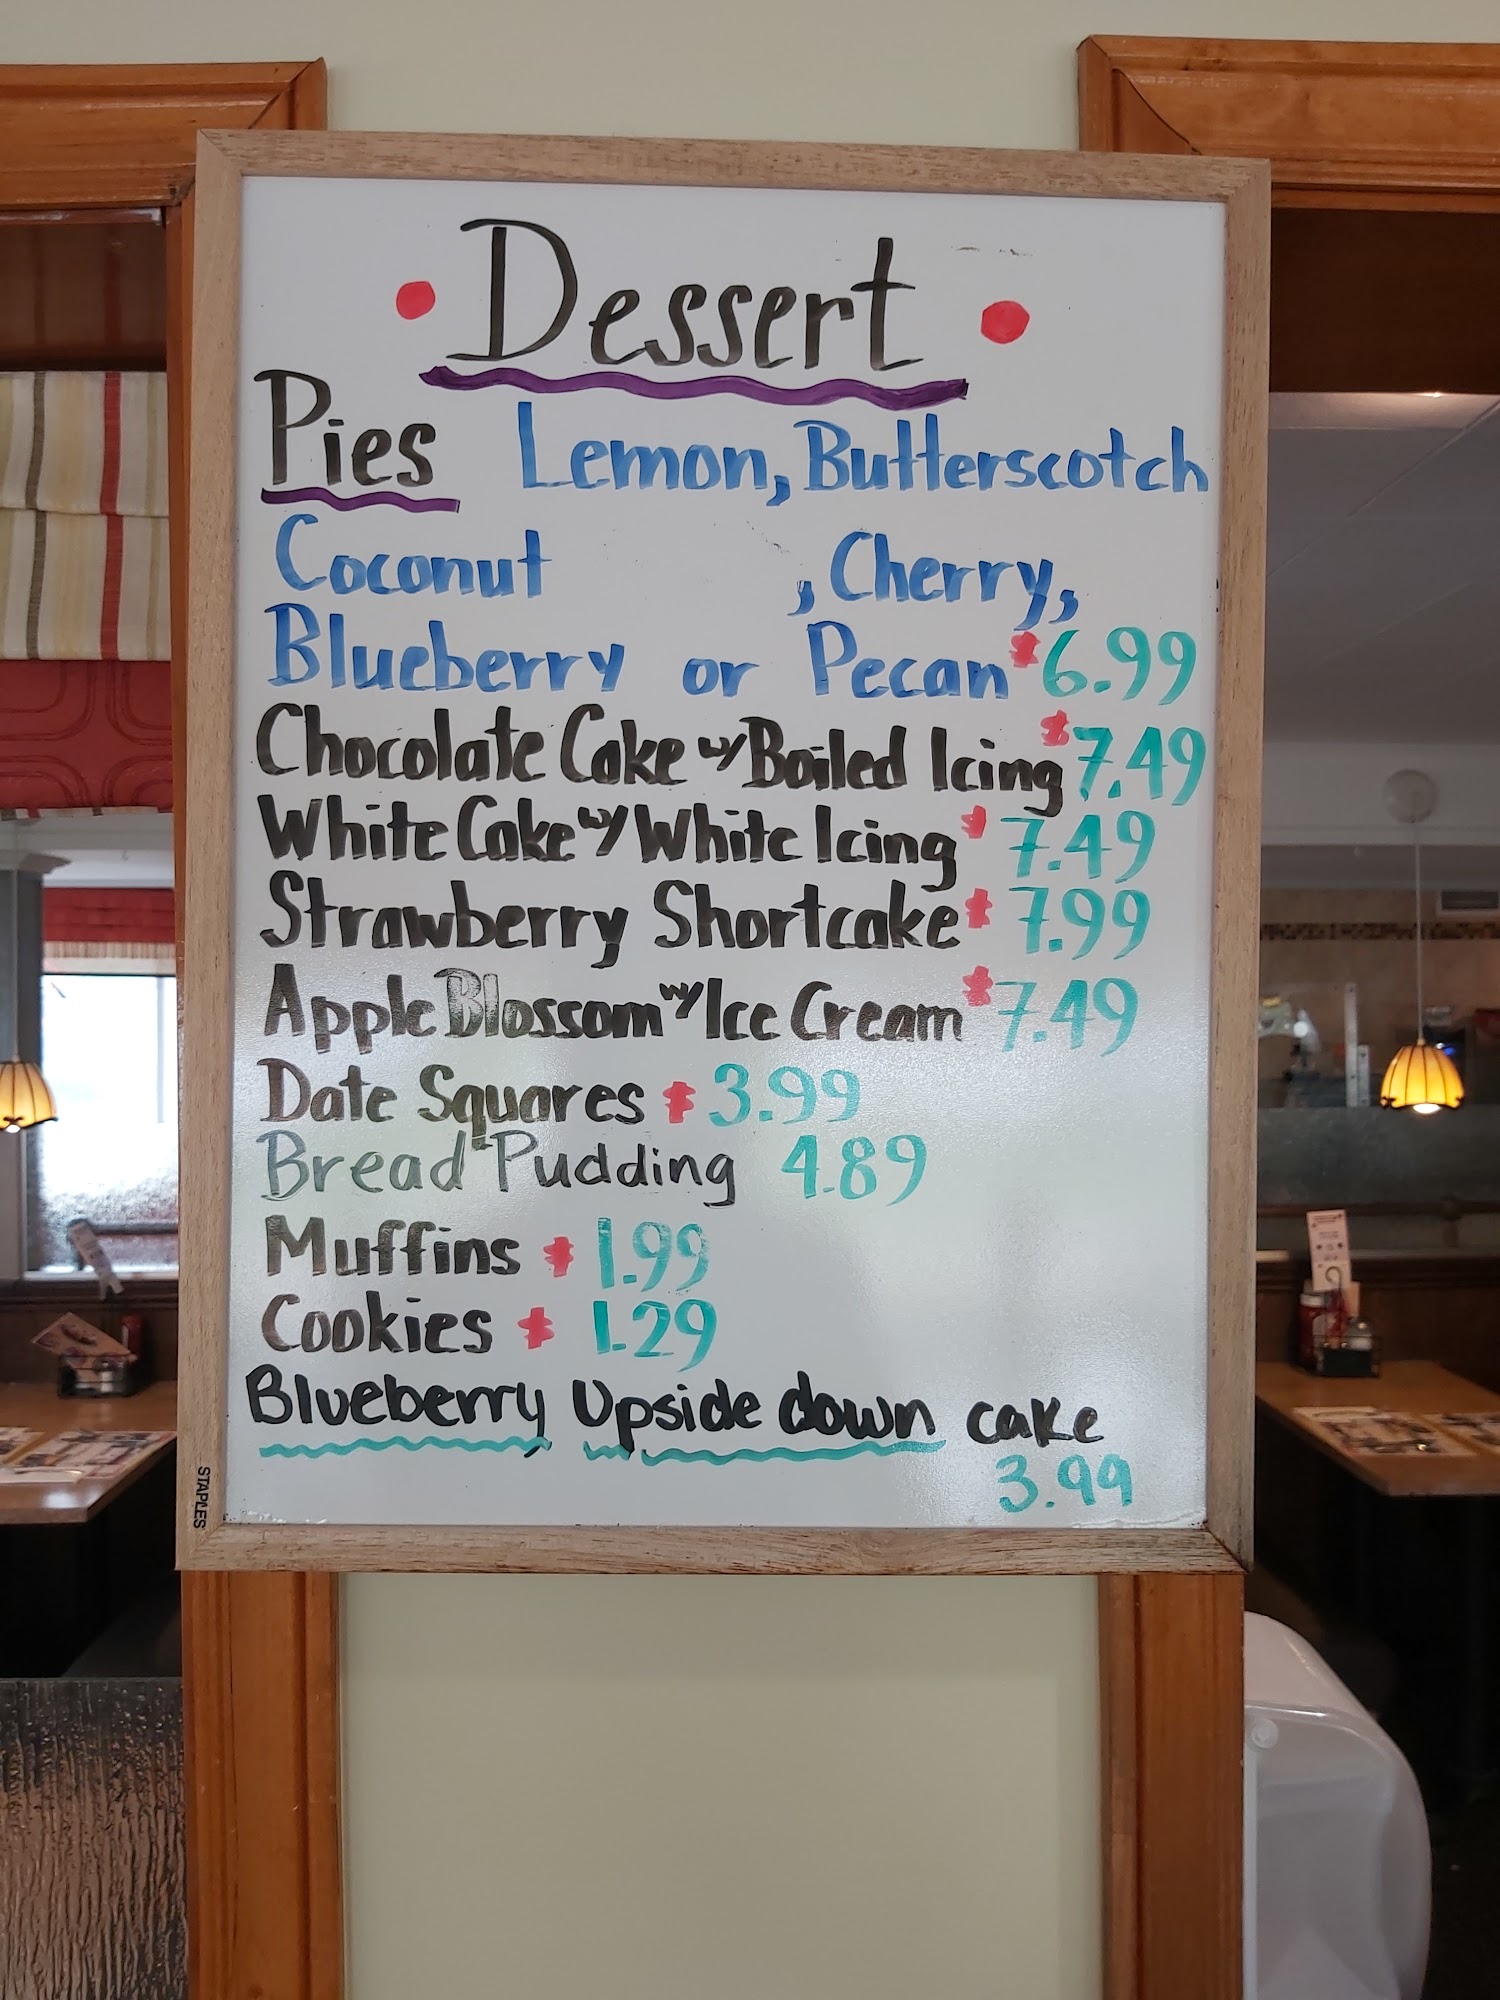 Dessert
Pies Lemon, Butterscotch
Coconut , Cherry,
Blueberry or Pecan $6.99
Chocolate Cake w/ Boiled Icing $7.49
White Cake w/ White Icing $7.49
Strawberry Shortcake $7.99
Apple Blossom w/ Ice Cream $7.49
Date Squares $3.99
Bread Pudding 4.89
Muffins $1.99
Cookies $1.29
Blueberry Upside down cake
3.99
STAPLES